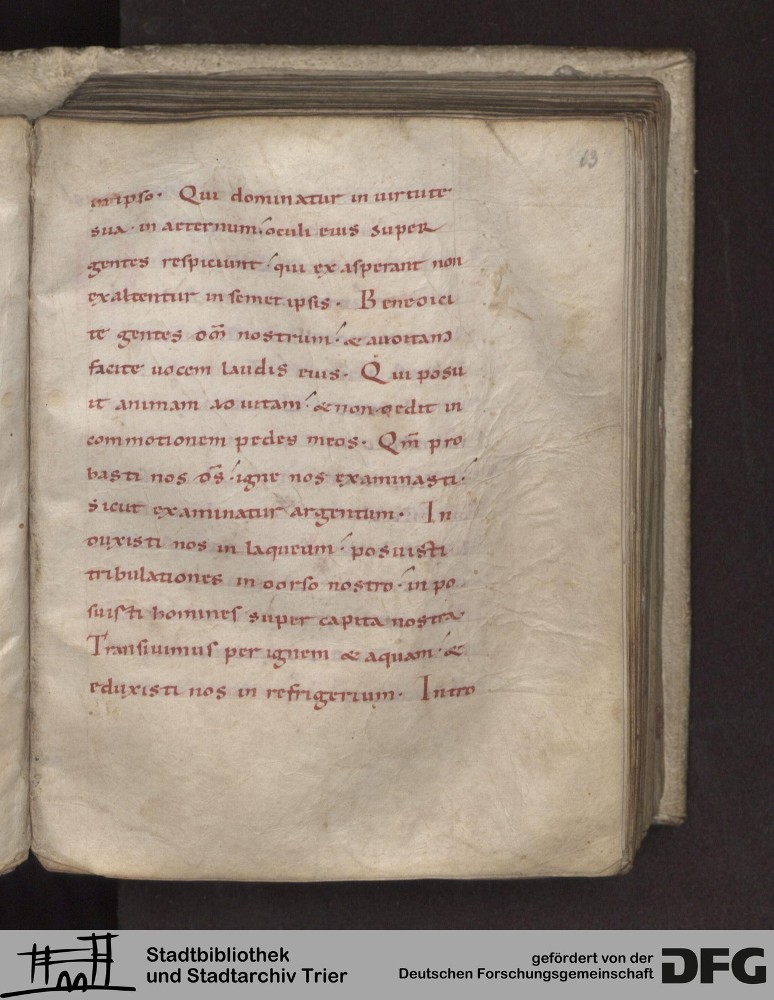 63
in ipso· Qui dominatur in uirtute
sua· in aeternum· oculi eius super
gentes respiciunt· qui exasperant non
exaltentur in semet ipsis· Benedici
te gentes dm̄ nostrum· & auditam
facite uocem laudis eius· Qui posu
it animam ad uitam· & non dedit in
commotionem pedes meos· Qm̄ pro
basti nos ds̄· igne nos examinasti·
sicut examinatur argentum· In
duxisti nos in laqueum· posuisti
tribulationes in dorso nostro· inpo
suisti homines super capita nostra·
Transiuimus per ignem & aquam· &
eduxisti nos in refrigerium· Intro
Stadtbibliothek
und Stadtarchiv Trier
gefördert von der
Deutschen Forschungsgemeinschaft
DFG